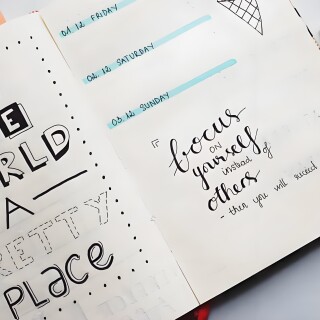 E
RLD
A
RETTY
PLACE
01.12 FRIDAY
02.12 SATURDAY
03.12 SUNDAY
focus
ON
yourself
instead of
others
- then you will succeed